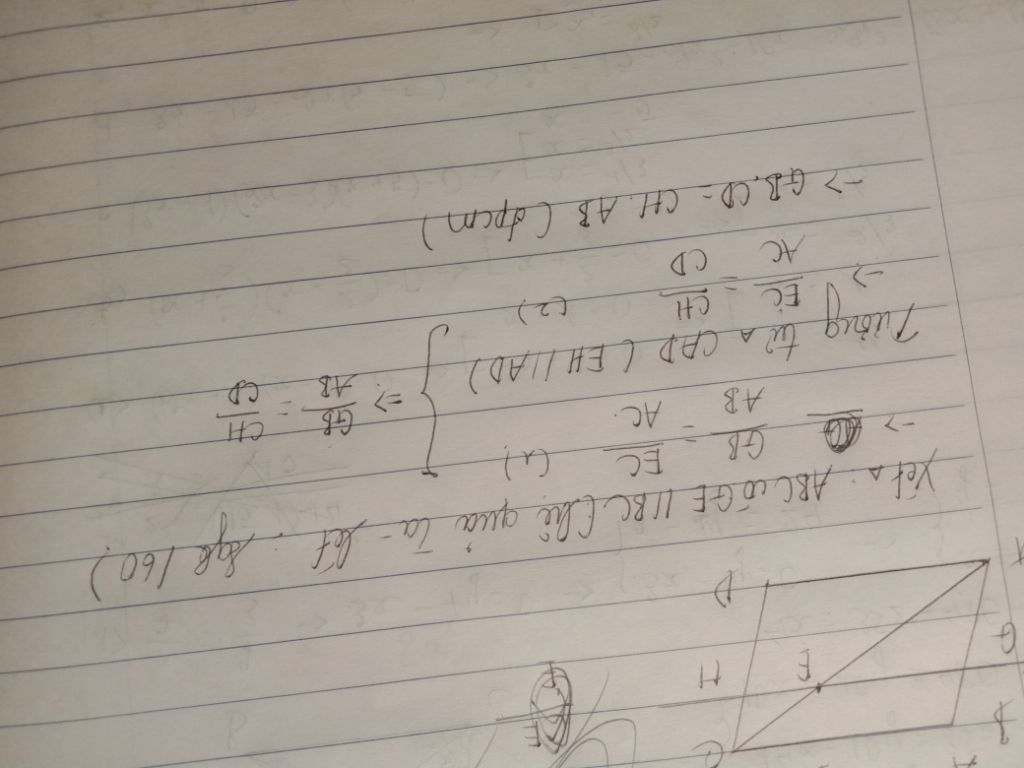 A
B
G
C
E
H
D
A
E
Xét Δ ABC có GE // BC (hệ quả Ta-lét. sgk / 60.)
→ GB/AB = EC/AC (1)
Tương tự Δ CAD (EH // AD)
→ EC/AC = CH/CD (2)
⇒ GB/AB = CH/CD
→ GB.CD = CH.AB (đpcm)